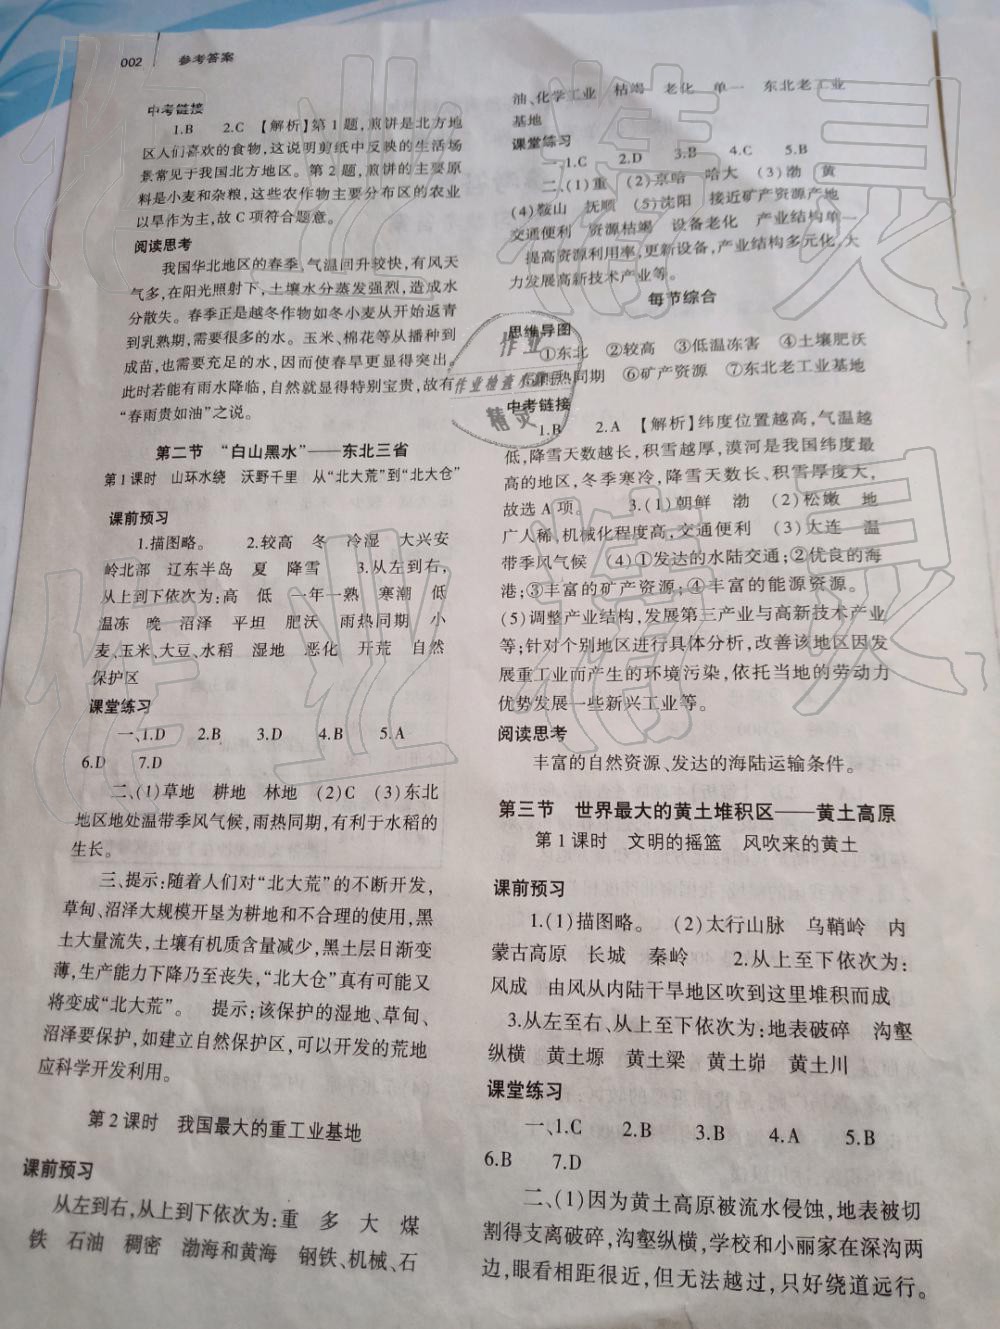 002 参考答案
中考链接
1.B 2.C 【解析】第1题,煎饼是北方地
区人们喜欢的食物,这说明剪纸中反映的生活场
景常见于我国北方地区。第2题,煎饼的主要原
料是小麦和杂粮,这些农作物主要分布区的农业
以旱作为主,故C项符合题意。
阅读思考
我国华北地区的春季,气温回升较快,有风天
气多,在阳光照射下,土壤水分蒸发强烈,造成水
分散失。春季正是越冬作物如冬小麦从开始返青
到乳熟期,需要很多的水。玉米、棉花等从播种到
成苗,也需要充足的水,因而使春旱更显得突出。
此时若能有雨水降临,自然就显得特别宝贵,故有
“春雨贵如油”之说。
第二节 “白山黑水”——东北三省
第1课时 山环水绕 沃野千里 从“北大荒”到“北大仓”
课前预习
1.描图略。 2.较高 冬 冷湿 大兴安
岭北部 辽东半岛 夏 降雪 3.从左到右,
从上到下依次为:高 低 一年一熟 寒潮 低
温冻 晚 沼泽 平坦 肥沃 雨热同期 小
麦、玉米、大豆、水稻 湿地 恶化 开荒 自然
保护区
课堂练习
一、1.D 2.B 3.D 4.B 5.A
6.D 7.D
二、(1)草地 耕地 林地 (2)C (3)东北
地区地处温带季风气候,雨热同期,有利于水稻的
生长。
三、提示:随着人们对“北大荒”的不断开发,
草甸、沼泽大规模开垦为耕地和不合理的使用,黑
土大量流失,土壤有机质含量减少,黑土层日渐变
薄,生产能力下降乃至丧失,“北大仓”真有可能又
将变成“北大荒”。 提示:该保护的湿地、草甸、
沼泽要保护,如建立自然保护区,可以开发的荒地
应科学开发利用。
第2课时 我国最大的重工业基地
课前预习
从左到右,从上到下依次为:重 多 大 煤
铁 石油 稠密 渤海和黄海 钢铁、机械、石
油、化学工业 枯竭 老化 单一 东北老工业
基地
课堂练习
一、1.C 2.D 3.B 4.C 5.B
二、(1)重 (2)京哈 哈大 (3)渤 黄
(4)鞍山 抚顺 (5)沈阳 接近矿产资源产地
交通便利 资源枯竭 设备老化 产业结构单一
提高资源利用率,更新设备,产业结构多元化,大
力发展高新技术产业等。
每节综合
思维导图
①东北 ②较高 ③低温冻害 ④土壤肥沃
⑤雨热同期 ⑥矿产资源 ⑦东北老工业基地
中考链接
1.B 2.A 【解析】纬度位置越高,气温越
低,降雪天数越长,积雪越厚,漠河是我国纬度最
高的地区,冬季寒冷,降雪天数长、积雪厚度大,
故选A项。 3.(1)朝鲜 渤 (2)松嫩 地
广人稀,机械化程度高,交通便利 (3)大连 温
带季风气候 (4)①发达的水陆交通;②优良的海
港;③丰富的矿产资源;④丰富的能源资源。
(5)调整产业结构,发展第三产业与高新技术产业
等;针对个别地区进行具体分析,改善该地区因发
展重工业而产生的环境污染,依托当地的劳动力
优势发展一些新兴工业等。
阅读思考
丰富的自然资源、发达的海陆运输条件。
第三节 世界最大的黄土堆积区——黄土高原
第1课时 文明的摇篮 风吹来的黄土
课前预习
1.(1)描图略。 (2)太行山脉 乌鞘岭 内
蒙古高原 长城 秦岭 2.从上至下依次为:
风成 由风从内陆干旱地区吹到这里堆积而成
3.从左至右、从上至下依次为:地表破碎 沟壑
纵横 黄土塬 黄土梁 黄土峁 黄土川
课堂练习
一、1.C 2.B 3.B 4.A 5.B
6.B 7.D
二、(1)因为黄土高原被流水侵蚀,地表被切
割得支离破碎,沟壑纵横,学校和小丽家在深沟两
边,眼看相距很近,但无法越过,只好绕道远行。
作业
作业检查小帮手
精灵
作业精灵
作业精灵